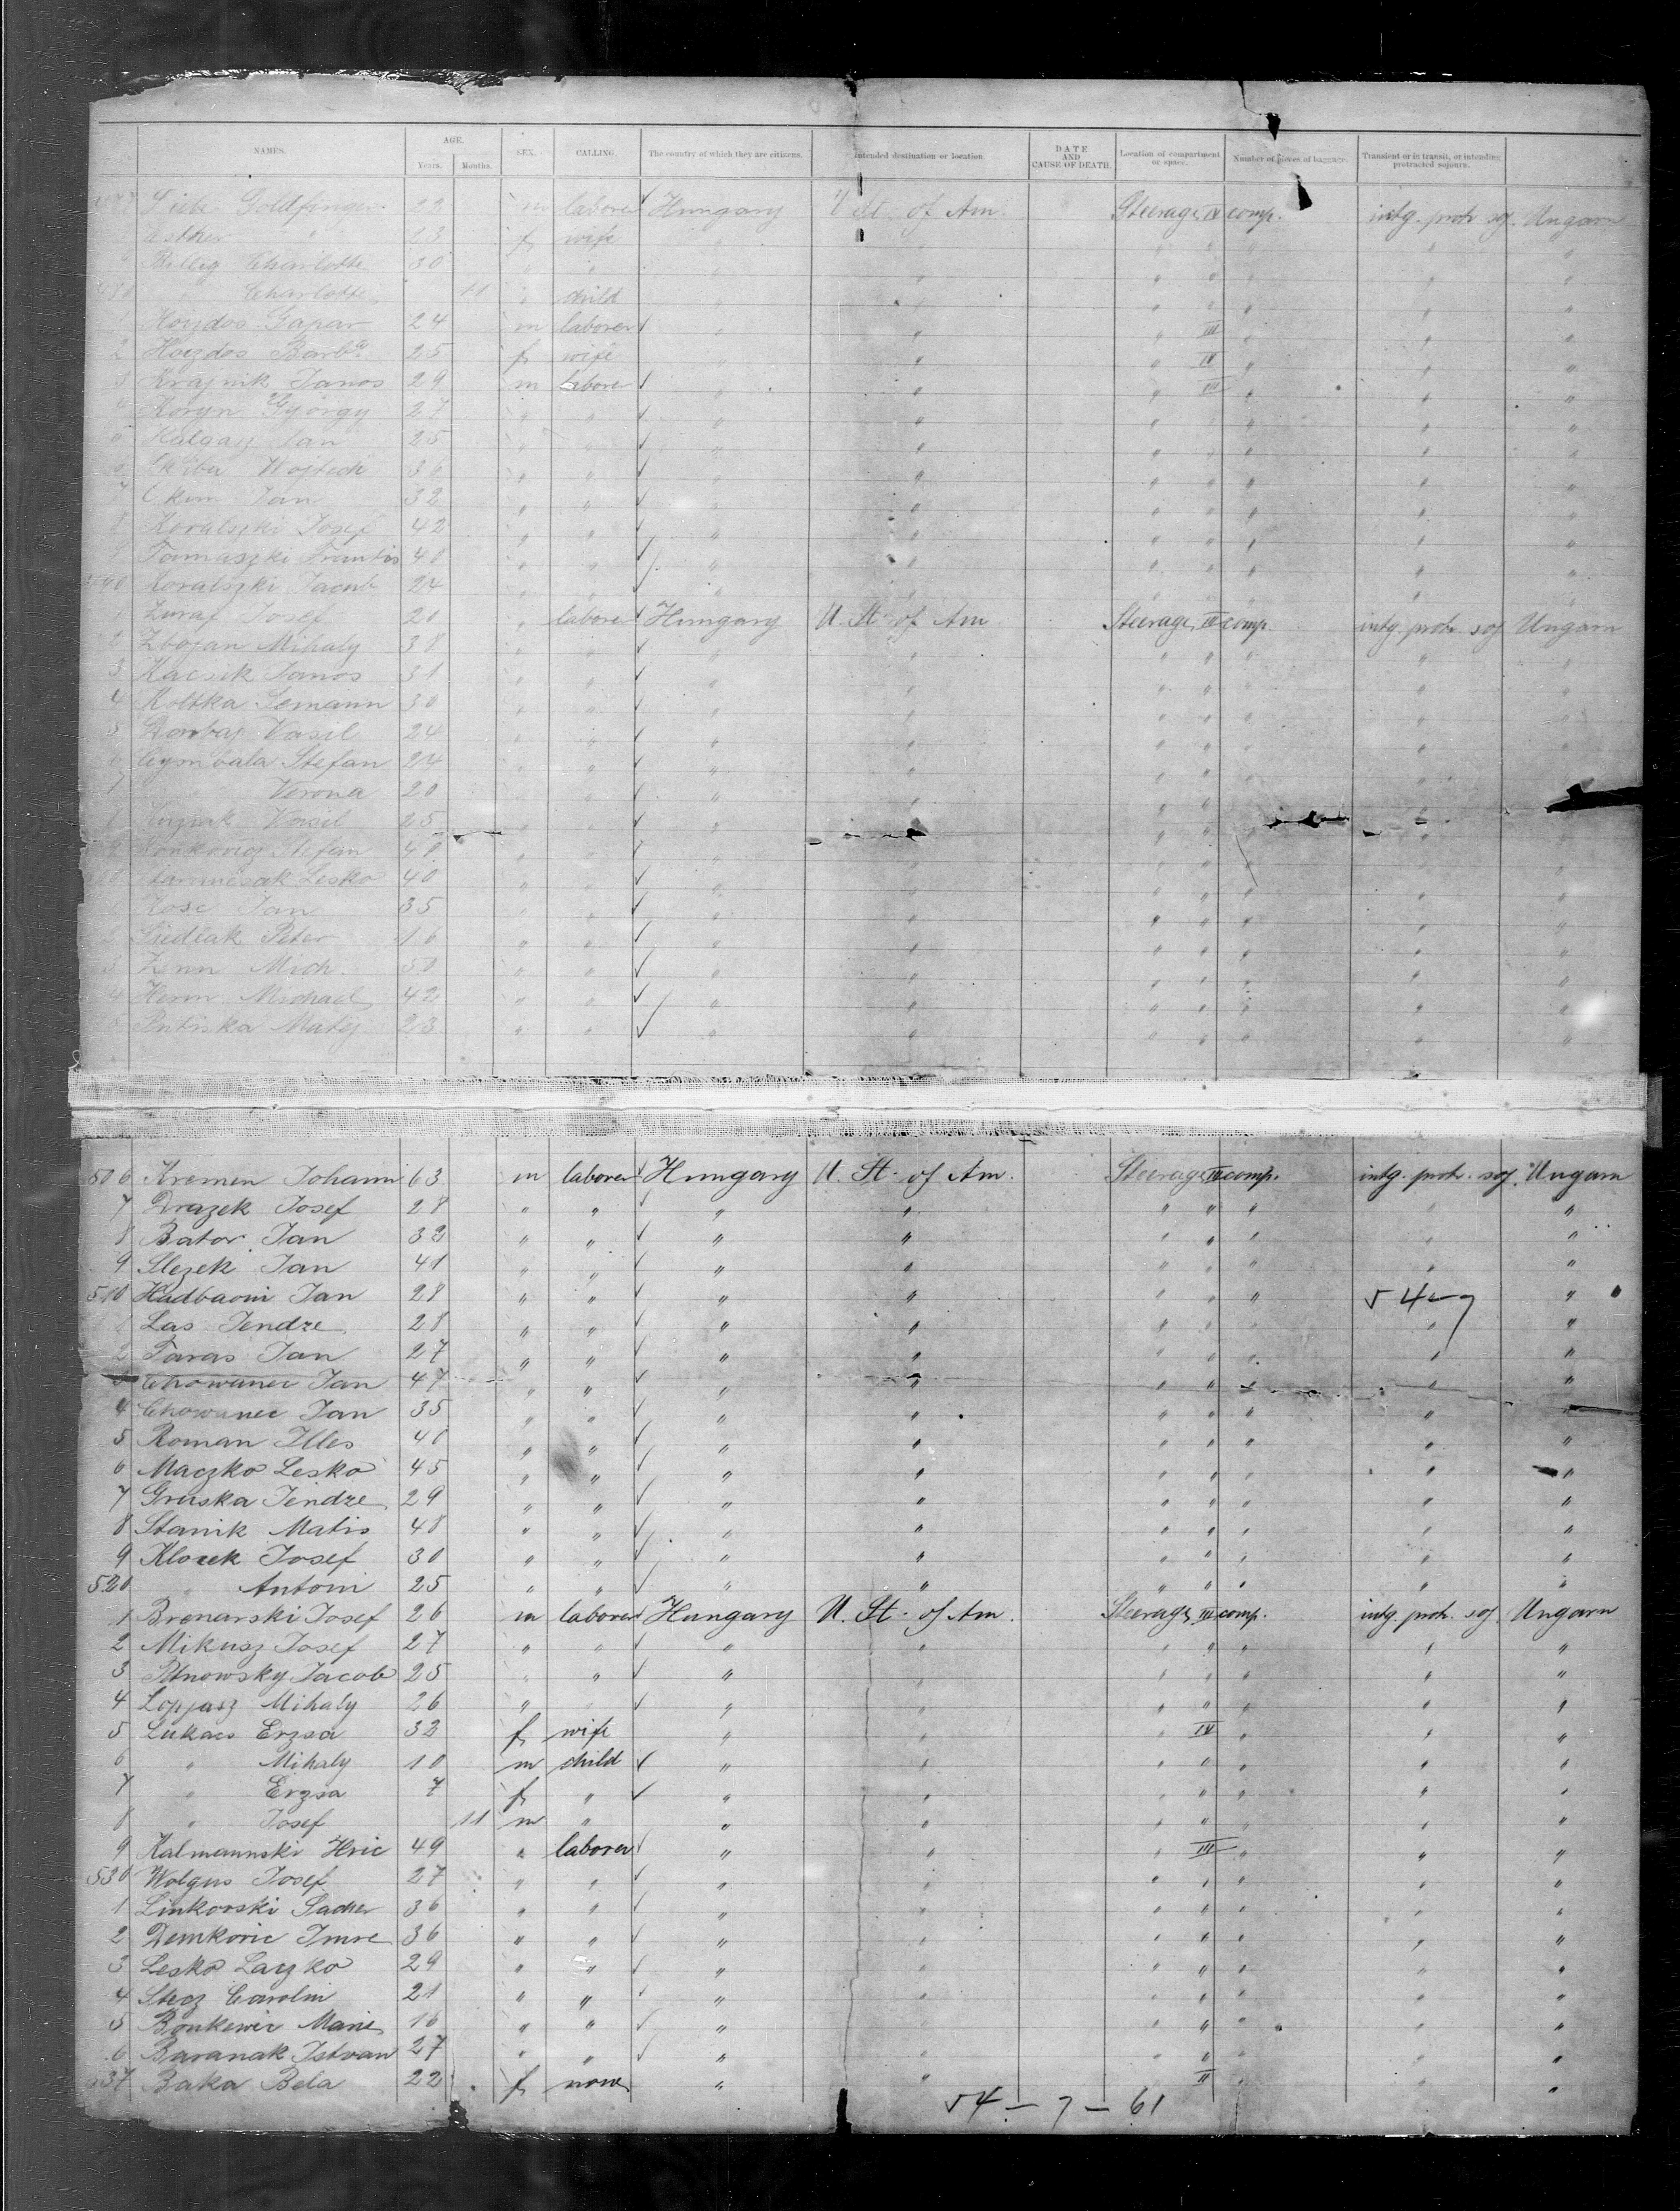 NAMES. AGE. Years. Months. SEX. CALLING. The country of which they are citizens. Intended destination or location DATE AND CAUSE OF DEATH. Location of compartment or space. Number of pieces of baggage. Transient or in transit, or intending protracted sojourn.
Goldfinger 22 m laborer Hungary U St. of Am. Steerage IV comp. intg. protr. soj. Ungarn
Esther " 13 f wife " " " " " " "
Charlotte 30 " " " " " " " " "
Charlotte 11 " child " " " " " " "
1 Hoydos Gapar 24 m laborer " " " III " " "
2 Hoydos Barb^a 25 f wife " " " IV " " "
3 Krajnik Janos 29 m laborer " " " III " " "
4 Koryn György 27 " " " " " " " " "
5 Jan 25 " " " " " " " " "
6 Wojtech 36 " " " " " " " " "
7 Jan 32 " " " " " " " " "
8 Kovalszki Josef 42 " " " " " " " " "
9 Tamaszki Frantis 40 " " " " " " " " "
490 Kovalszki Jacub 24 " " " " " " " " "
1 Zuraf Josef 20 " laborer Hungary U. St. of Am Steerage III comp. intg. protr. soj Ungarn
2 Zbojan Mihaly 38 " " " " " " " " "
3 Kacsik Janos 31 " " " " " " " " "
4 Koloka Semann 30 " " " " " " " " "
5 Dombaj Vasil 24 " " " " " " " " "
6 Cymbala Stefan 24 " " " " " " " " "
7 " Verona 20 " " " " " " " " "
8 Vasil 25 " " " " " " " " "
9 Stefan 40 " " " " " " " " "
Lesko 40 " " " " " " " " "
1 Kosc Jan 35 " " " " " " " " "
2 Siedlak Peter 16 " " " " " " " " "
3 Mich. 50 " " " " " " " " "
4 Herm Michael 42 " " " " " " " " "
5 Matij 23 " " " " " " " " "
506 Kremen Johann 63 m laborer Hungary U. St. of Am. Steerage III comp. intg. protr. soj. Ungarn
7 Drazek Josef 28 " " " " " " " " "
8 Bator Jan 32 " " " " " " " " "
9 Slezek Jan 41 " " " " " " " " "
510 Hudbaoni Jan 28 " " " " " " " 54-7 "
1 Las Jendre 28 " " " " " " " " "
2 Taras Jan 27 " " " " " " " " "
3 Chowanec Jan 47 " " " " " " " " "
4 Chowanec Jan 35 " " " " " " " " "
5 Roman Illes 40 " " " " " " " " "
6 Maczko Lesko 45 " " " " " " " " "
7 Gruska Jendre 29 " " " " " " " " "
8 Stanik Matis 48 " " " " " " " " "
9 Klozek Josef 30 " " " " " " " " "
520 " Antoni 25 " " " " " " " " "
1 Brenarski Josef 26 m laborer Hungary U. St. of Am. Steerage III comp. intg. protr. soj Ungarn
2 Mikusz Josef 27 " " " " " " " " "
3 Jacob 25 " " " " " " " " "
4 Lopjasz Mihaly 26 " " " " " " " " "
5 Lukacs Erzsa 32 f wife " " " IV " " "
6 " Mihaly 10 m child " " " " " " "
7 " Erzsa 7 f " " " " " " " "
8 " Josef 11 m " " " " " " " "
9 Kalmannski Hric 49 " laborer " " " III " " "
530 Wolgus Josef 27 " " " " " " " " "
1 Linkovski 36 " " " " " " " " "
2 Demkovic Imre 36 " " " " " " " " "
3 Lesko Laczko 29 " " " " " " " " "
4 Stecz Carolin 21 " " " " " " " " "
5 Bonkewic Marie 16 " " " " " " " " "
6 Baranak Istvan 27 " " " " " " " " "
537 Baka Bela 22 f none " " " II " " "
54-7-61